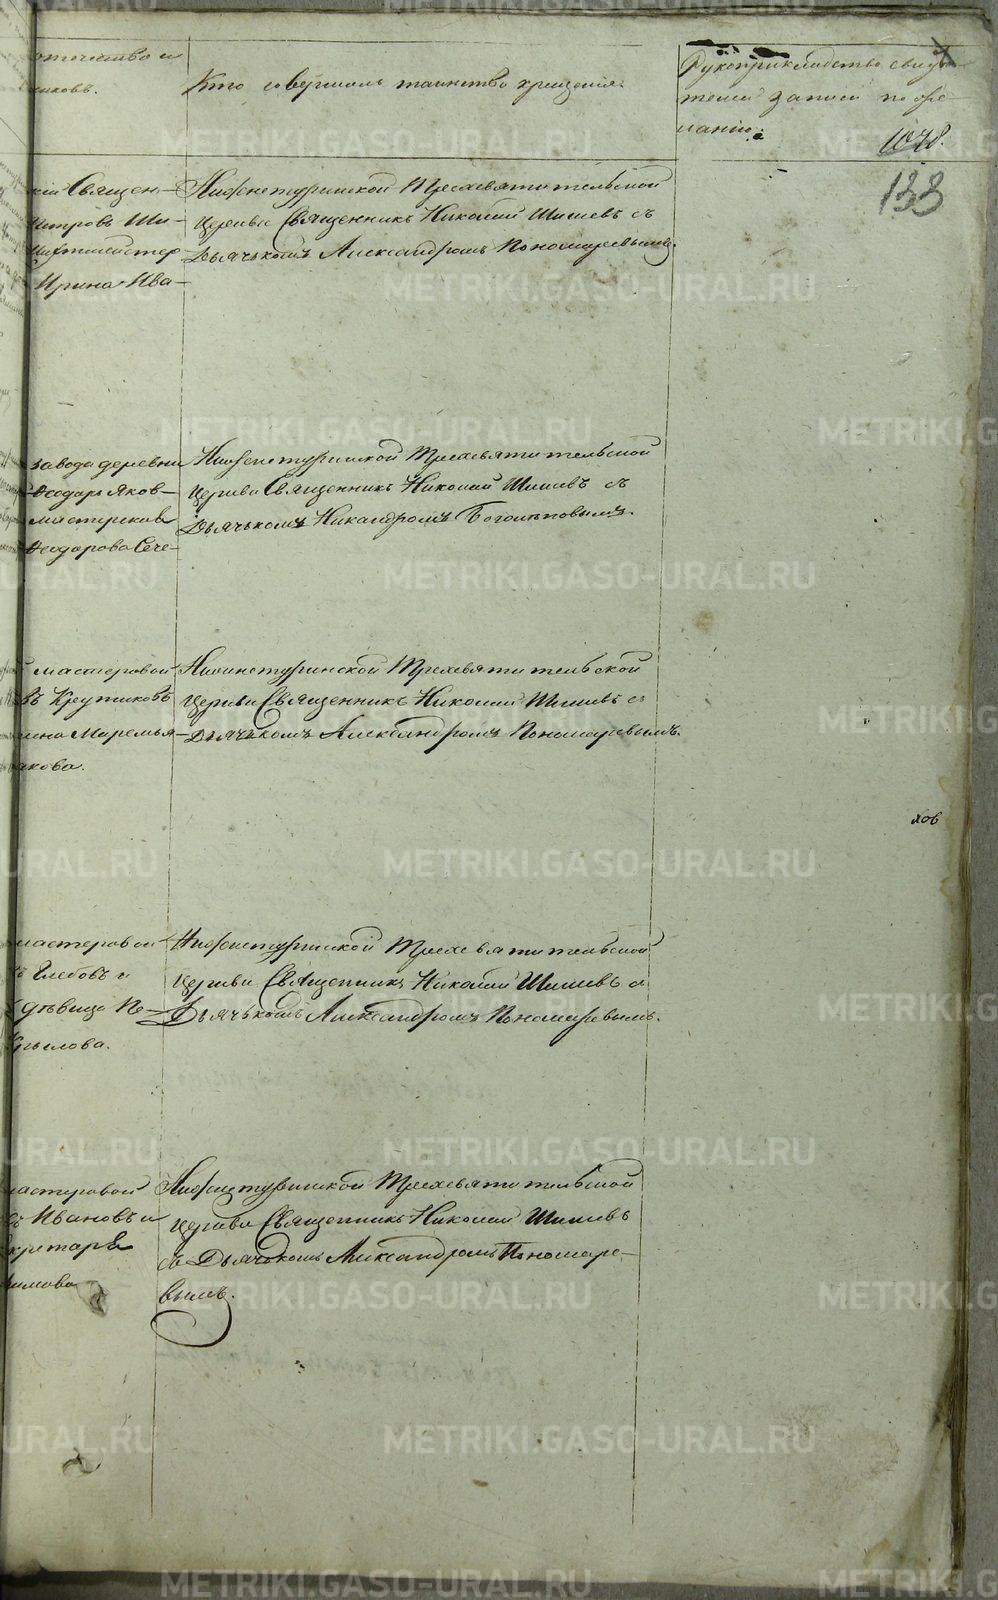 отчество и
никовъ.
Кто совершалъ таинство крещенія.
Рукоприкладство свидѣ-
телей записи по же-
ланію:
1048.
133
кій Священ-
митровъ Ши-
Шихтмейстер
Ирина Ива-
Нижнетуринской Трехсвятительской
Церкви Священникъ Николай Шишевъ съ
Дьячькомъ Александромъ Пономаревымъ.
завода деревни
Ѳеодоръ Яков-
мастерская
Ѳеодорова Сече-
Нижнетуринской Трехсвятительской
Церкви Священникъ Николай Шишевъ съ
Дьячькомъ Никандромъ Боголѣповымъ.
мастеровой
въ Крутиковъ
Маремья-
акова.
Нижнетуринской Трехсвятительской
Церкви Священникъ Николай Шишевъ съ
Дьячькомъ Александромъ Пономаревымъ.
хов
мастеровой
Глебовъ и
дѣвица По-
Крылова.
Нижнетуринской Трехсвятительской
Церкви Священникъ Николай Шишевъ съ
Дьячькомъ Александромъ Пономаревымъ.
мастеровой
Ивановъ и
кретаря
имова
Нижнетуринской Трехсвятительской
Церкви Священникъ Николай Шишевъ
съ Дьячькомъ Александромъ Пономаре-
вымъ.
METRIKI.GASO-URAL.RU